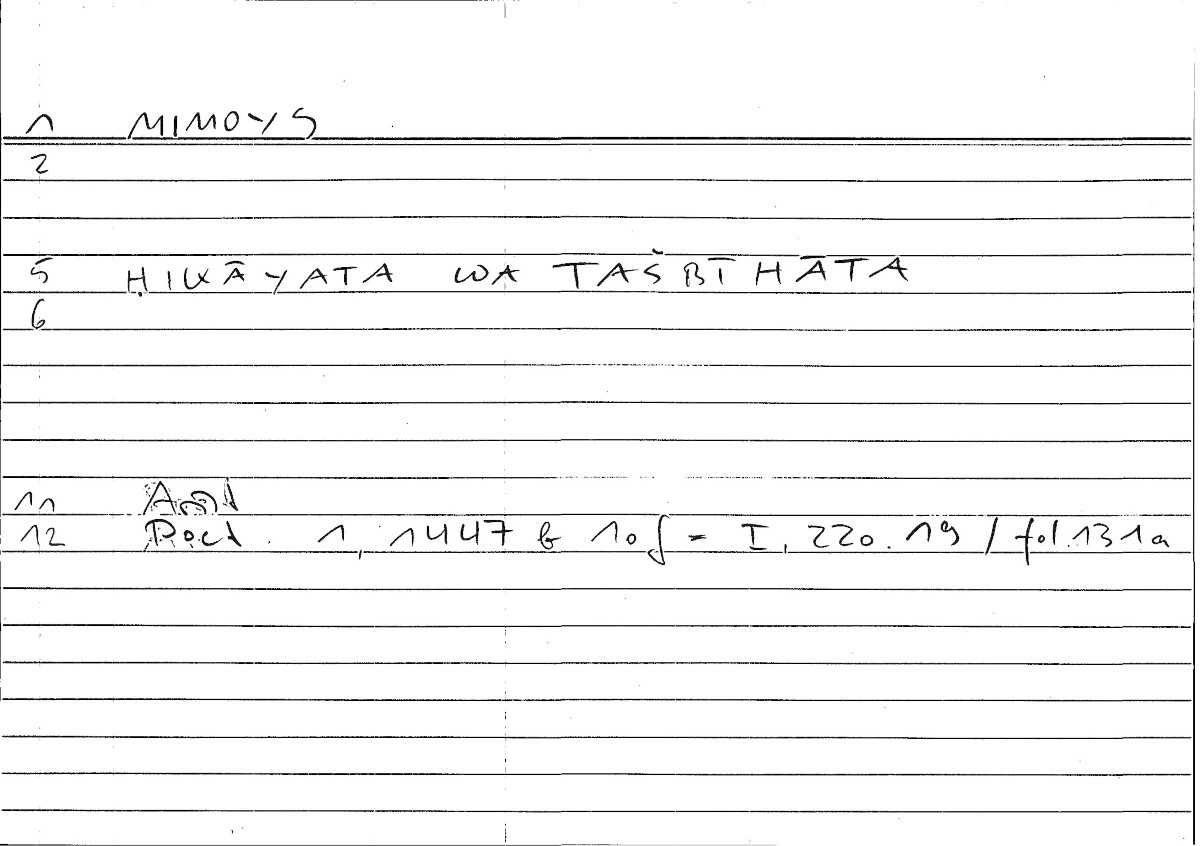 1 MIMOYS
2
5 ḤIKĀYATA WA TAŠBĪHĀTA
6
11
12 Poet. 1, 1447 b 10 f = I, 220.19 / fol.131a